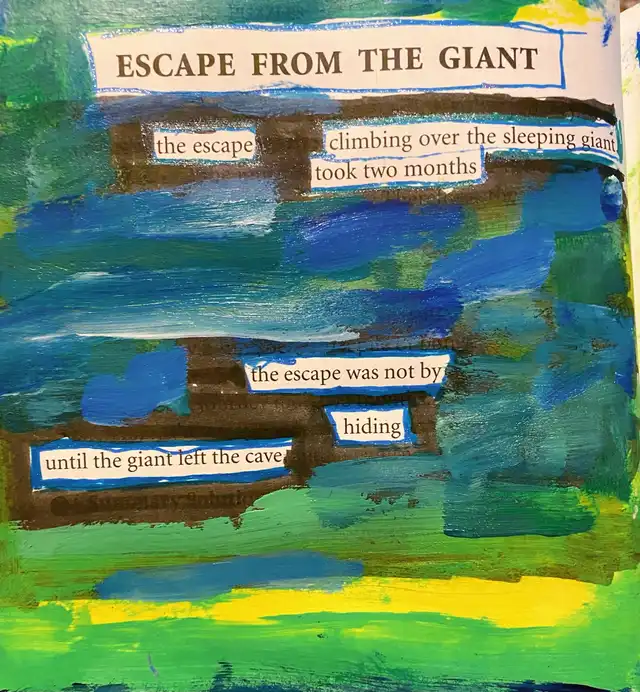 ESCAPE FROM THE GIANT
the escape climbing over the sleeping giant
took two months
the escape was not by
hiding
until the giant left the cave